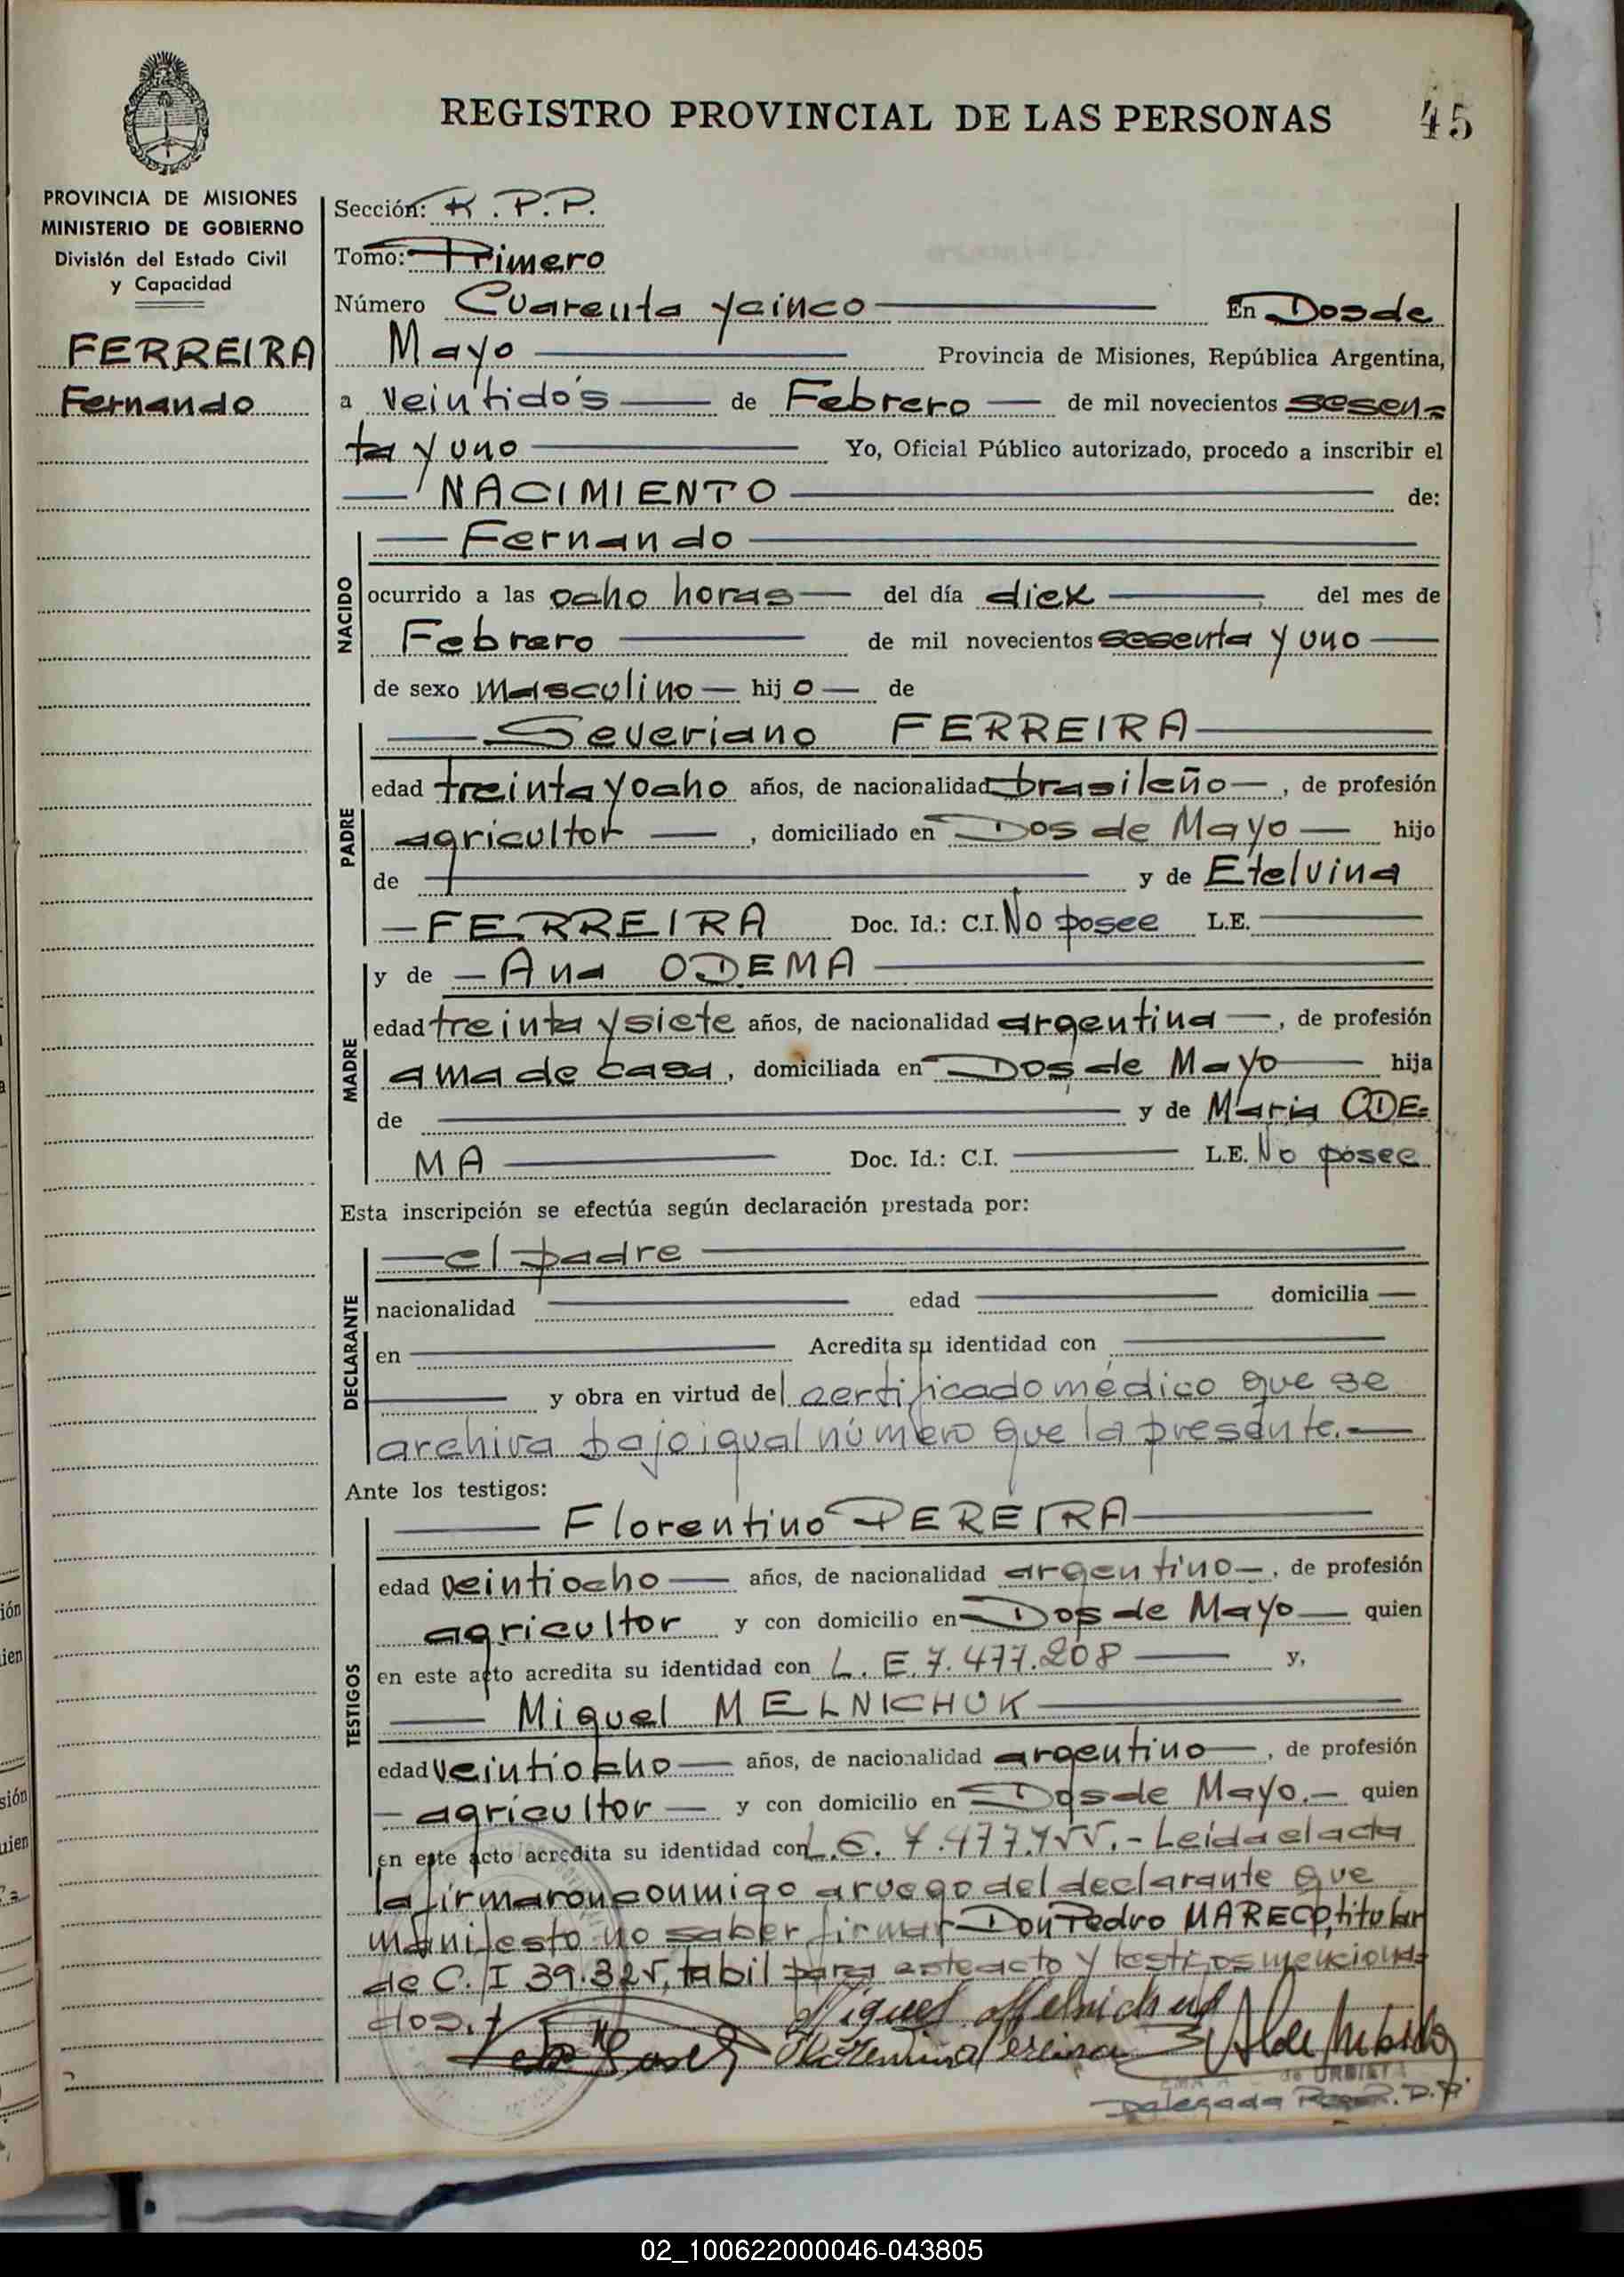 REGISTRO PROVINCIAL DE LAS PERSONAS 45
PROVINCIA DE MISIONES
MINISTERIO DE GOBIERNO
División del Estado Civil
y Capacidad
FERREIRA
Fernando
Sección: R.P.P.
Tomo: Primero
Número Cuarenta y cinco En Dos de
Mayo Provincia de Misiones, República Argentina,
a veintidós de Febrero de mil novecientos sesen=
ta y uno Yo, Oficial Público autorizado, procedo a inscribir el
NACIMIENTO de:
Fernando
NACIDO
ocurrido a las ocho horas del día diez del mes de
Febrero de mil novecientos sesenta y uno
de sexo masculino hijo de
Severiano FERREIRA
PADRE
edad treinta y ocho años, de nacionalidad brasileño, de profesión
agricultor, domiciliado en Dos de Mayo hijo
de y de Etelvina
FERREIRA Doc. Id.: C.I. No posee L.E.
y de Ana ODEMA
MADRE
edad treinta y siete años, de nacionalidad argentina, de profesión
ama de casa, domiciliada en Dos de Mayo hija
de y de Maria ODE=
MA Doc. Id.: C.I. L.E. No posee
Esta inscripción se efectúa según declaración prestada por:
el padre
DECLARANTE
nacionalidad edad domicilia
en Acredita su identidad con
y obra en virtud del certificado médico que se
archiva bajo igual número que la presente.
Ante los testigos:
Florentino PEREIRA
TESTIGOS
edad veintiocho años, de nacionalidad argentino, de profesión
agricultor y con domicilio en Dos de Mayo quien
en este acto acredita su identidad con L.E. 7.477.208 y,
Miguel MELNICHUK
edad veintiocho años, de nacionalidad argentino, de profesión
agricultor y con domicilio en Dos de Mayo.- quien
en este acto acredita su identidad con L.E. 7.477.155.- Leida el acta
la firmaron conmigo a ruego del declarante que
manifesto no saber firmar Don Pedro MARECO, titular
de C.I 39.325, habil para este acto y testigos menciona=
dos.
Miguel Melnichuk
Florentino Pereira
de URBIETA
Delegada R.P.P. D.P.
02_100622000046-043805